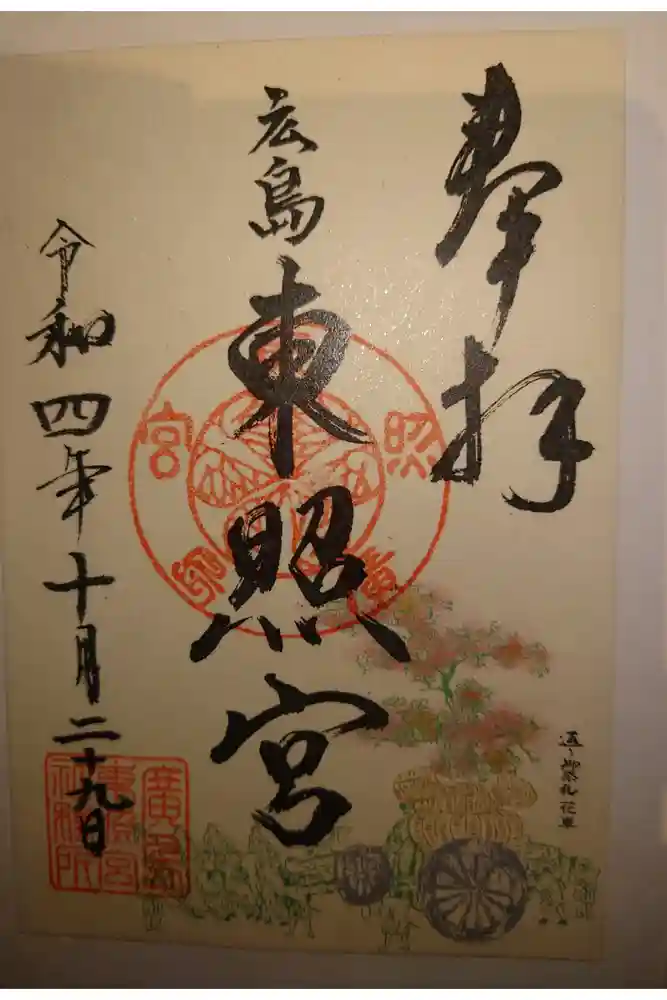 奉拝
広島
東照宮
令和四年十月二十九日
通り御祭礼花車
廣島
東照宮
社務所